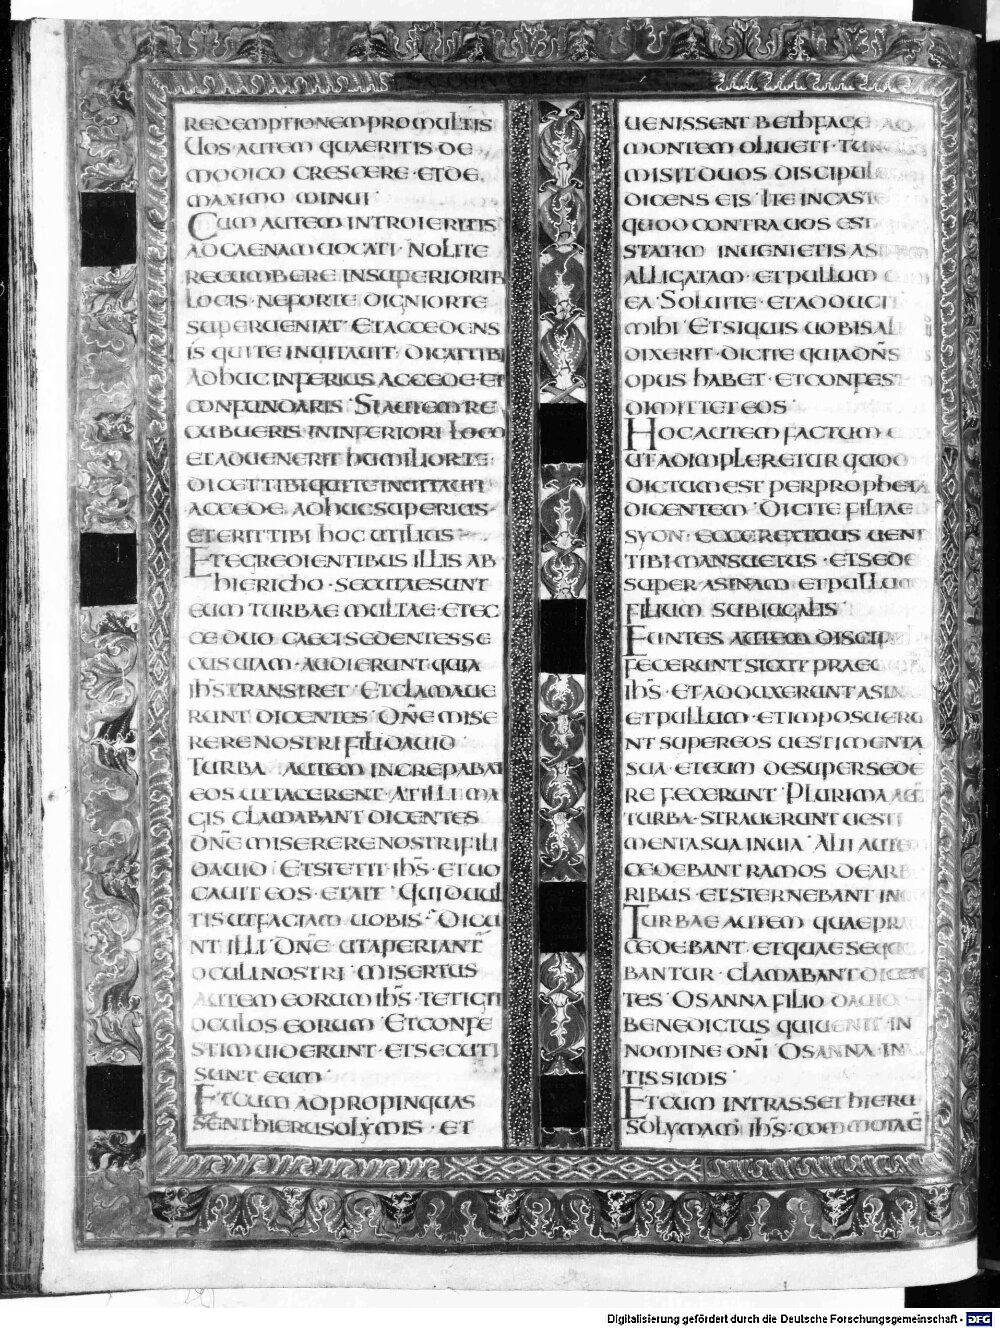 REDEMPTIONEMPROMULTIS
UOS·AUTEM QUAERITIS DE
MODICO CRESCERE·ETDE
MAXIMO MINUI·
CUM AUTEM INTROIERITIS
ADCAENAM UOCATI·NOLITE
RECUMBERE INSUPERIORIB
LOCIS·NEFORTE DIGNIORTE
SUPERUENIAT·ETACCEDENS
IS QUITE INUITAUIT·DICATTIBI
ADHUC INFERIUS ACCEDE·ET
CONFUNDARIS·SIAUTEM RE
CUBUERIS·ININFERIORI LOCO
ETADUENERIT HUMILIORTE·
DICETTIBIQUITEINUITAUIT·
ACCEDE·ADHUCSUPERIUS·
ETERITTIBI HOC UTILIUS
ETEGREDIENTIBUS ILLIS AB
HIERICHO·SECUTAESUNT
EUM TURBAE MULTAE·ETEC
CE DUO CAECI SEDENTES SE
CUS UIAM·AUDIERUNT QUIA
IHS̄ TRANSIRET·ETCLAMAUE
RUNT DICENTES·DN̄E MISE
RERENOSTRI FILIDAUID·
TURBA·AUTEM INCREPABAT
EOS UTTACERENT·ATILLI MA
GIS CLAMABANT DICENTES
DN̄E MISERERENOSTRIFILI
DAUID·ETSTETIT IHS̄·ETUO
CAUIT EOS·ETAIT·QUIDUUL
TIS UTFACIAM UOBIS·DICU
NT ILLI DN̄E·UTAPERIANT
OCULI NOSTRI·MISERTUS
AUTEM EORUM IHS̄·TETIGIT
OCULOS EORUM·ETCONFE
STIM UIDERUNT·ETSECUTI
SUNT EUM·
ETCUM ADPROPINQUAS
SENT HIERUSOLYMIS·ET
UENISSENT BETHFAGE AD
MONTEM OLIUETI·
MISIT DUOS
DICENS EIS·ITE INCASTE
QUOD CONTRAUOS EST
STATIM INUENIETIS
ALLIGATAM·ETPULLUM
EA·SOLUITE·ETADDUCI
MIHI·ETSIQUIS UOBIS
DIXERIT·DICITE QUIADN̄S
OPUS HABET·ETCONFES
DIMITTETEOS·
HOCAUTEM FACTUM
UTADIMPLERETUR QUOD
DICTUM EST PERPROPHETA
DICENTEM·DICITE FILIAE
SYON·ECCEREXTUUS UENI
TIBI MANSUETUS·ETSEDE
SUPER ASINAM ETPULLUM
FILIUM SUBIUGALIS
EUNTES AUTEM DISCIP
FECERUNT SICUT PRAEC
IHS̄·ETADDUXERUNT ASIN
ETPULLUM·ETIMPOSUERU
NT SUPEREOS UESTIMENTA
SUA·ETEUM DESUPERSEDE
RE FECERUNT·PLURIMA
TURBA·STRAUERUNT UESTI
MENTASUA INUIA·ALII AUTE
CEDEBANT RAMOS DEARB
RIBUS·ETSTERNEBANT
TURBAE AUTEM QUAE PRA
CEDEBANT·ETQUAE SEQUE
BANTUR·CLAMABANT DICEN
TES·OSANNA FILIO DAUID
BENEDICTUS QUIUENIT IN
NOMINE DN̄I·OSANNA·IN
TISSIMIS·
ETCUM INTRASSET HIERU
SOLYMAM IHS̄·COMMOTAĒ
Digitalisierung gefördert durch die Deutsche Forschungsgemeinschaft - DFG